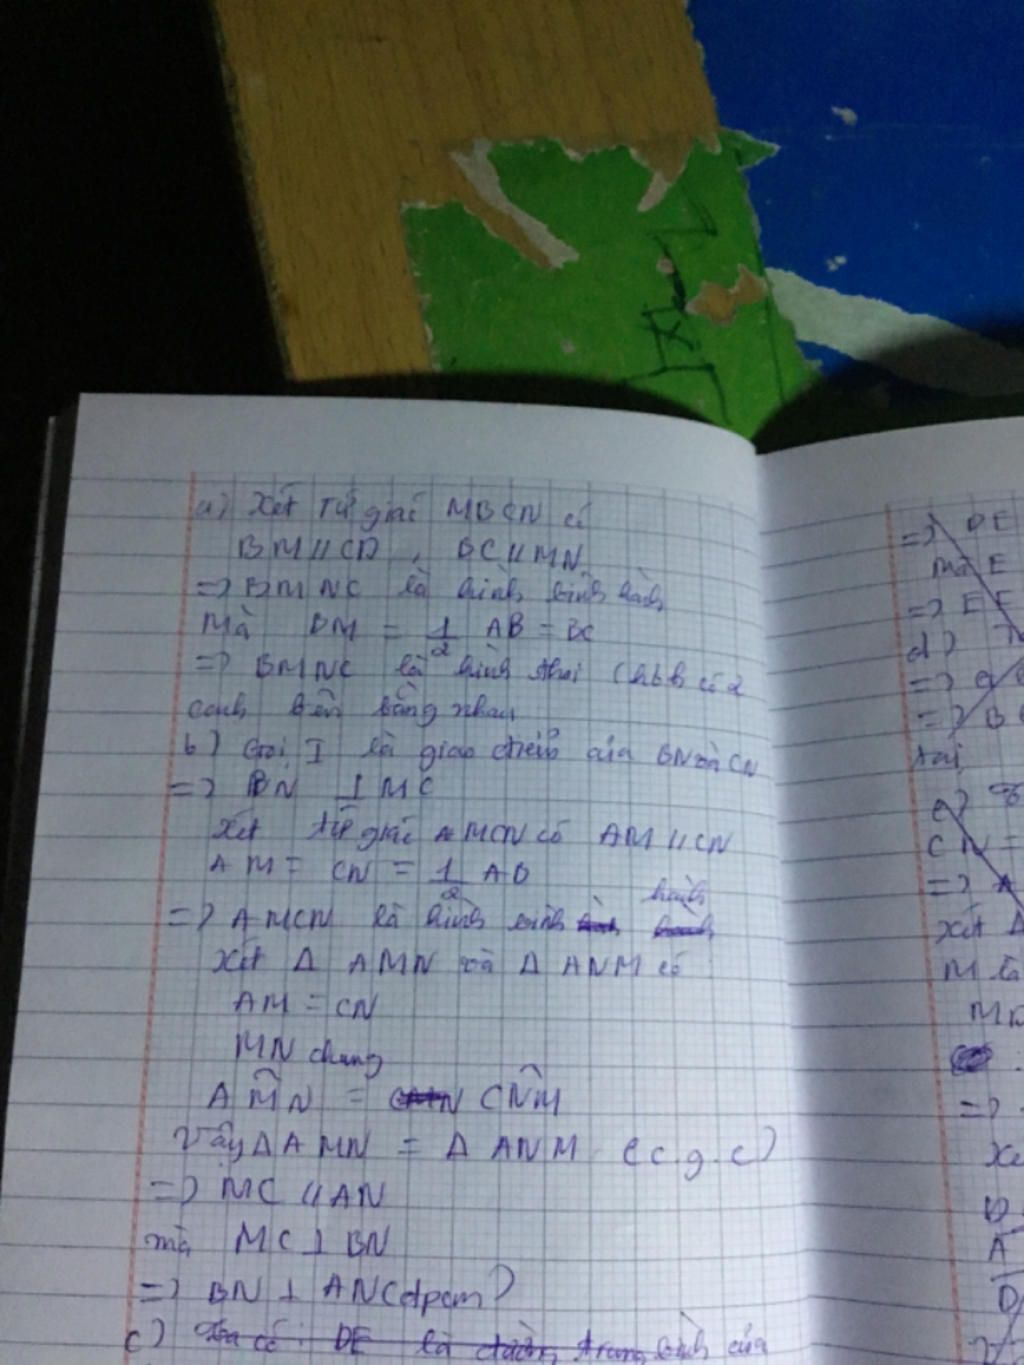 a) Xét Tứ giác MBCN có
BM // CD , BC // MN
=> BMNC là hình bình hành
Mà BM = 1/2 AB = BC
=> BMNC là hình thoi (hbh có 2
cạnh bên bằng nhau
b) Gọi I là giao điểm của BN và CN
=> BN ⊥ MC
Xét tứ giác AMCN có AM // CN
AM = CN = 1/2 AB
=> AMCN là hình bình hành
Xét Δ AMN và Δ ANM có
AM = CN
MN chung
AM̂N = CN̂M
Vậy Δ AMN = Δ ANM (c.g.c)
=> MC // AN
mà MC ⊥ BN
=> BN ⊥ AN (đpcm)
c) Ta có: DE là đường trung bình của
=> DE
mà E
=> EF
d)
=>
=> B
tại
e)
CN =
=> A
xét Δ
M là
=>
Xé
D
A
D